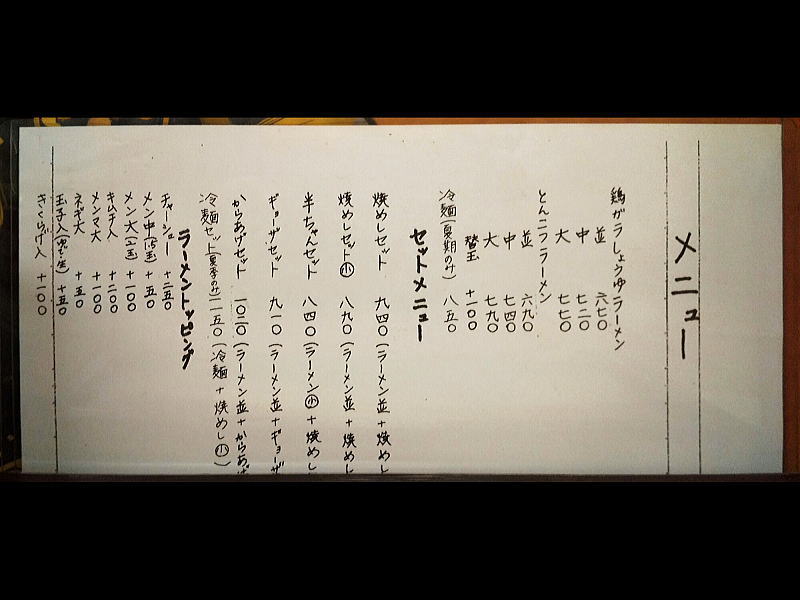 メニュー
鶏ガラしょうゆラーメン
並 六七〇
中 七二〇
大 七七〇
とんこつラーメン
並 六九〇
中 七四〇
大 七九〇
替玉 +一〇〇
冷麺(夏期のみ) 八五〇
セットメニュー
焼めしセット 九四〇(ラーメン並+焼めし
焼めしセット小 八九〇(ラーメン並+焼めし
半ちゃんセット 八四〇(ラーメン小+焼めし
ギョーザセット 九一〇(ラーメン並+ギョーザ
からあげセット 一〇二〇(ラーメン並+からあげ
冷麺セット(夏季のみ)一一五〇(冷麺+焼めし小)
ラーメントッピング
チャーシュー +二五〇
メン中 +五〇
メン大(二玉) +一〇〇
キムチ入 +二〇〇
メンマ大 +一〇〇
ネギ大 +五〇
玉子入(ゆで・生) +五〇
きくらげ入 +一〇〇